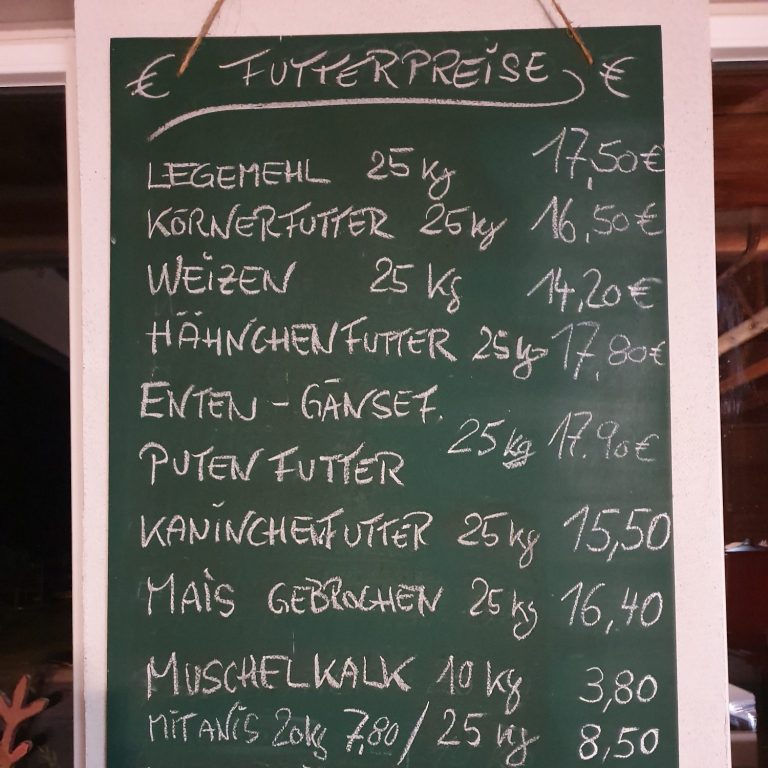 € FUTTERPREISE €
LEGEMEHL 25 kg 17,50€
KÖRNERFUTTER 25kg 16,50€
WEIZEN 25 kg 14,20€
HÄHNCHENFUTTER 25kg 17,80€
ENTEN - GÄNSEF.
25 kg 17.90€
PUTENFUTTER
KANINCHENFUTTER 25kg 15,50
MAIS GEBROCHEN 25kg 16,40
MUSCHELKALK 10 kg 3,80
MITANIS 20kg 7,80 / 25 kg 8,50